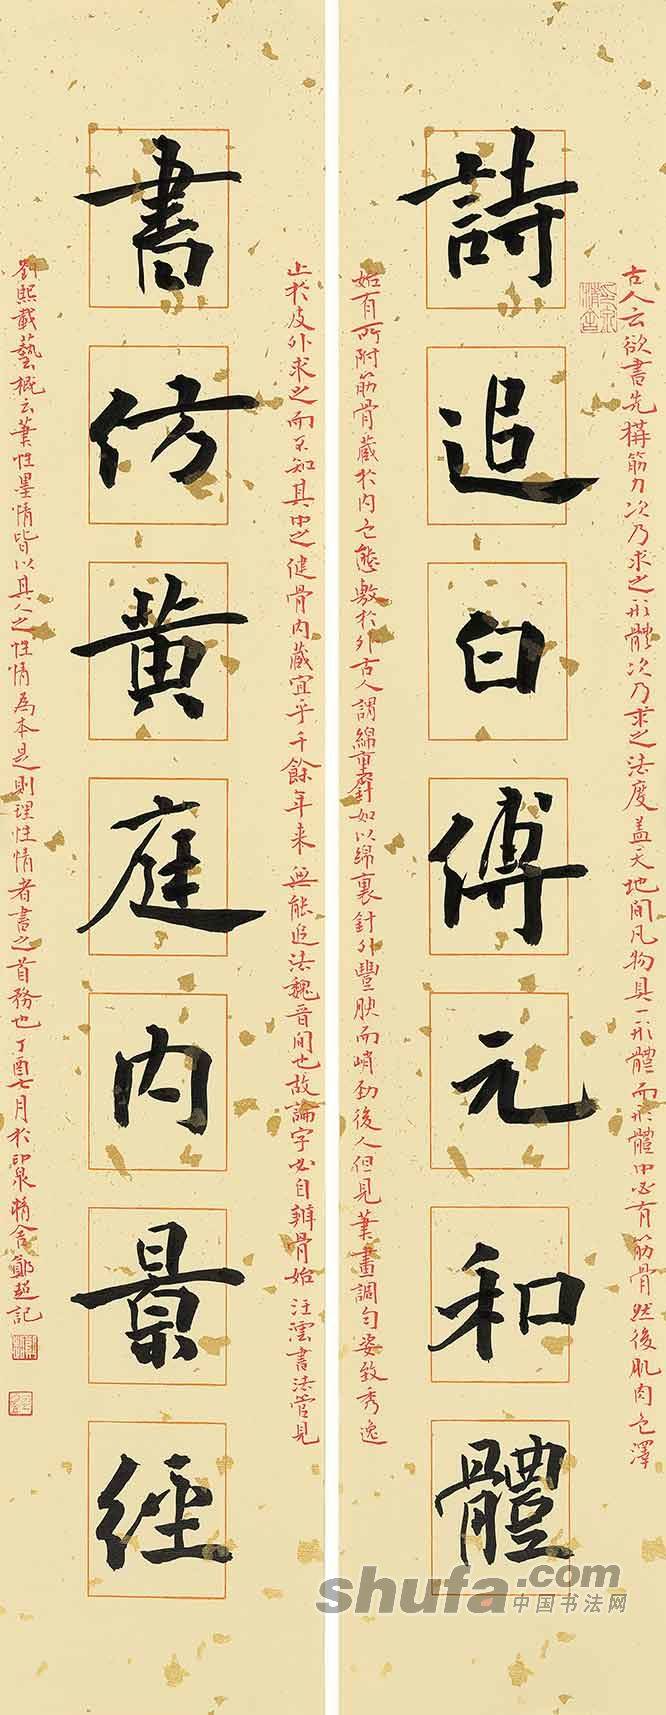 詩追白傅元和體
古人云欲書先構筋力次乃求之形體次乃求之法度蓋天地間凡物具一形體而形體中必有筋骨然後肌肉色澤
始有所附筋骨藏於内色態敷於外古人謂綿裹針如以綿裹針外豐腴而峭勁後人但見筆畫調勻姿致秀逸
書仿黄庭内景經
止於皮外求之而不知其中之健骨内藏宜乎千餘年来無能追法魏晋間也故論字必自辨骨始汪澐書法管見
劉熙載藝概云筆性墨情皆以其人之性情為本是則理性情者書之首務也丁酉七月於印泉精舍鄭超記
shufa.com
中国书法网